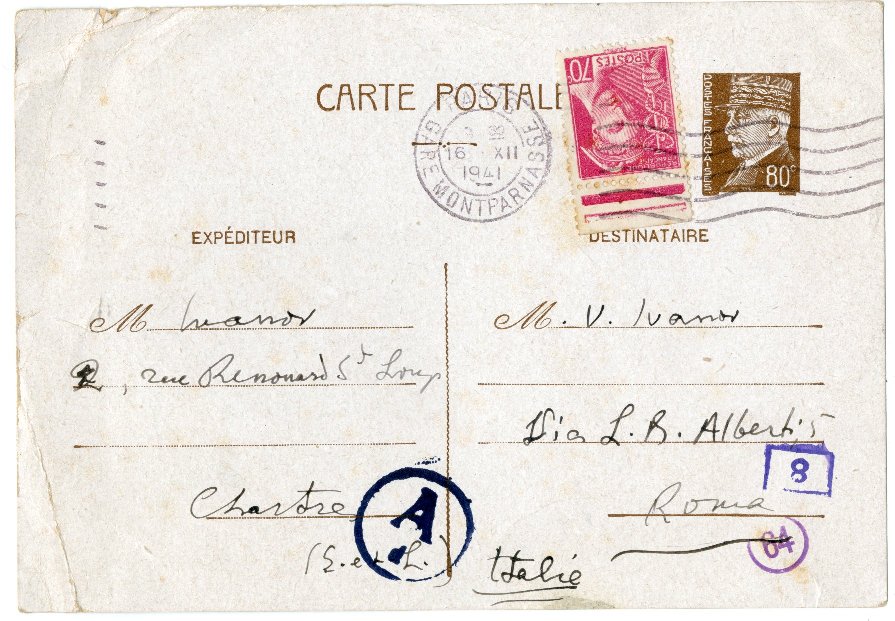 CARTE POSTALE
POSTES
70c
POSTES FRANÇAISES
80c
PARIS
16 XII
1941
GARE MONTPARNASSE
EXPÉDITEUR
M Ivanov
2, rue Renouard St Loup
Chartres
(E. et L.)
A
DESTINATAIRE
M. V. Ivanov
Via L. B. Alberti, 5
8
Roma
64
Italie